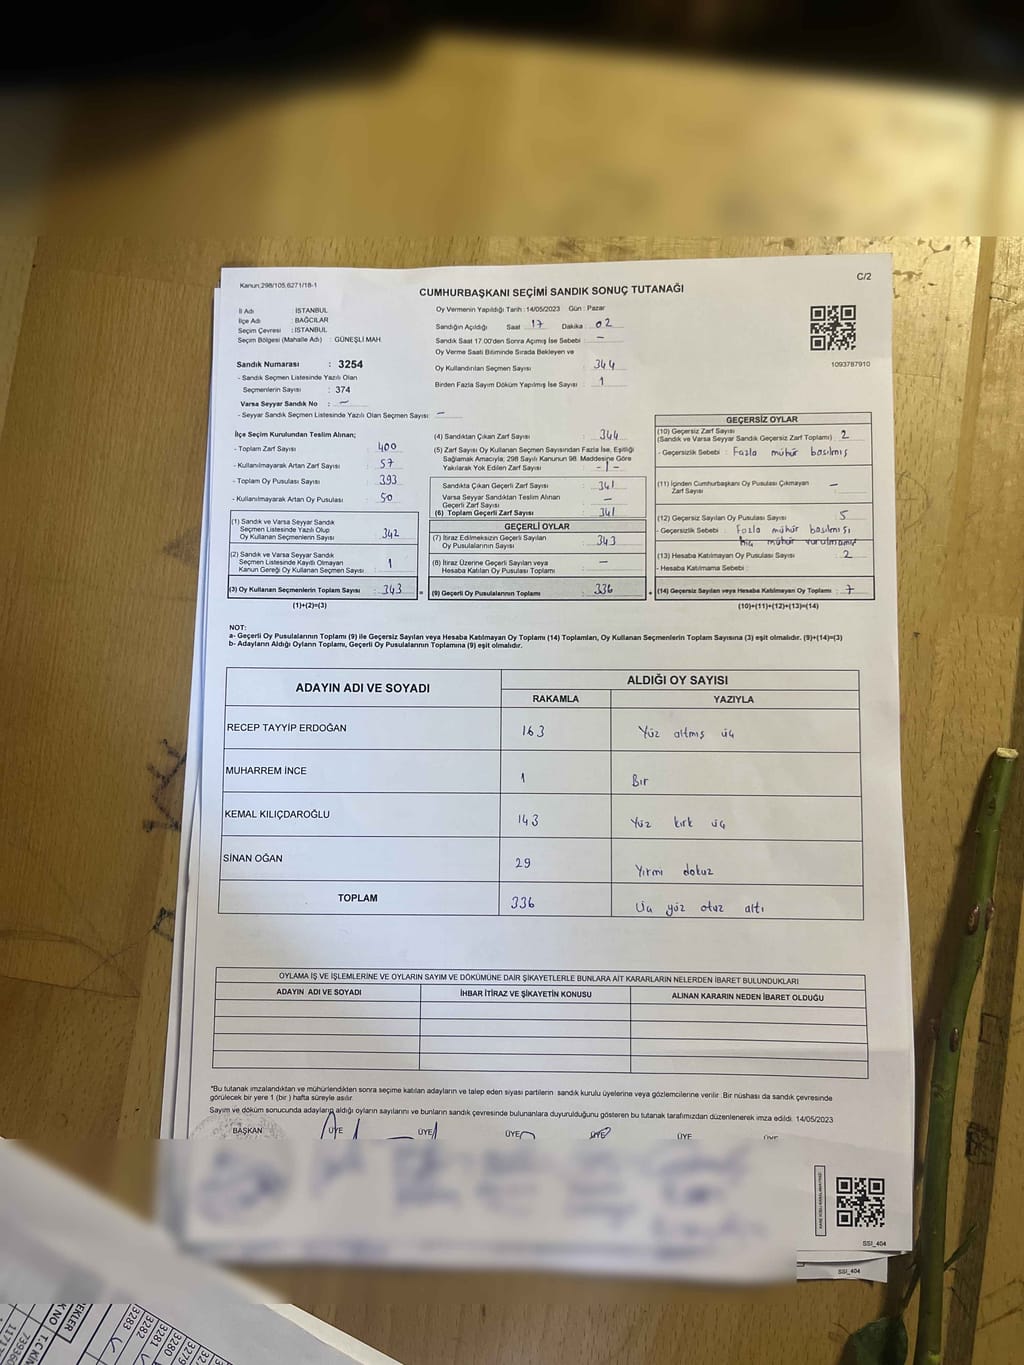 Kanun:298/105,6271/18-1
C/2
CUMHURBAŞKANI SEÇİMİ SANDIK SONUÇ TUTANAĞI
İl Adı : İSTANBUL
İlçe Adı : BAĞCILAR
Seçim Çevresi : İSTANBUL
Seçim Bölgesi (Mahalle Adı) : GÜNEŞLİ MAH.
Sandık Numarası : 3254
- Sandık Seçmen Listesinde Yazılı Olan
Seçmenlerin Sayısı : 374
Varsa Seyyar Sandık No : -
- Seyyar Sandık Seçmen Listesinde Yazılı Olan Seçmen Sayısı: -
Oy Vermenin Yapıldığı Tarih : 14/05/2023 Gün : Pazar
Sandığın Açıldığı Saat : 17 Dakika : 02
Sandık Saat 17.00'den Sonra Açılmış İse Sebebi : -
Oy Verme Saati Bitiminde Sırada Bekleyen ve
Oy Kullandırılan Seçmen Sayısı : 344
Birden Fazla Sayım Döküm Yapılmış İse Sayısı : 1
1093787910
İlçe Seçim Kurulundan Teslim Alınan;
- Toplam Zarf Sayısı : 400
- Kullanılmayarak Artan Zarf Sayısı : 57
- Toplam Oy Pusulası Sayısı : 393
- Kullanılmayarak Artan Oy Pusulası : 50
(1) Sandık ve Varsa Seyyar Sandık
Seçmen Listesinde Yazılı Olup
Oy Kullanan Seçmenlerin Sayısı : 342
(2) Sandık ve Varsa Seyyar Sandık
Seçmen Listesinde Kayıtlı Olmayan
Kanun Gereği Oy Kullanan Seçmen Sayısı : 1
(3) Oy Kullanan Seçmenlerin Toplam Sayısı : 343
(1)+(2)=(3)
(4) Sandıktan Çıkan Zarf Sayısı : 344
(5) Zarf Sayısı Oy Kullanan Seçmen Sayısından Fazla İse, Eşitliği
Sağlamak Amacıyla; 298 Sayılı Kanunun 98. Maddesine Göre
Yakılarak Yok Edilen Zarf Sayısı : -1-
Sandıkta Çıkan Geçerli Zarf Sayısı : 341
Varsa Seyyar Sandıktan Teslim Alınan
Geçerli Zarf Sayısı : -
(6) Toplam Geçerli Zarf Sayısı : 341
GEÇERLİ OYLAR
(7) İtiraz Edilmeksizin Geçerli Sayılan
Oy Pusulalarının Sayısı : 343
(8) İtiraz Üzerine Geçerli Sayılan veya
Hesaba Katılan Oy Pusulası Toplamı : -
= (9) Geçerli Oy Pusulalarının Toplamı : 336 +
GEÇERSİZ OYLAR
(10) Geçersiz Zarf Sayısı
(Sandık ve Varsa Seyyar Sandık Geçersiz Zarf Toplamı) : 2
- Geçersizlik Sebebi : Fazla mühür basılmış
(11) İçinden Cumhurbaşkanı Oy Pusulası Çıkmayan
Zarf Sayısı : -
(12) Geçersiz Sayılan Oy Pusulası Sayısı : 5
- Geçersizlik Sebebi : Fazla mühür basılmısı
hiç mühür vurulmamış
(13) Hesaba Katılmayan Oy Pusulası Sayısı : 2
- Hesaba Katılmama Sebebi :
(14) Geçersiz Sayılan veya Hesaba Katılmayan Oy Toplamı : 7
(10)+(11)+(12)+(13)=(14)
NOT:
a- Geçerli Oy Pusulalarının Toplamı (9) ile Geçersiz Sayılan veya Hesaba Katılmayan Oy Toplamı (14) Toplamları, Oy Kullanan Seçmenlerin Toplam Sayısına (3) eşit olmalıdır. (9)+(14)=(3)
b- Adayların Aldığı Oyların Toplamı, Geçerli Oy Pusulalarının Toplamına (9) eşit olmalıdır.
ADAYIN ADI VE SOYADI
ALDIĞI OY SAYISI
RAKAMLA YAZIYLA
RECEP TAYYİP ERDOĞAN 163 Yüz altmış üç
MUHARREM İNCE 1 Bir
KEMAL KILIÇDAROĞLU 143 Yüz kırk üç
SİNAN OĞAN 29 Yirmi dokuz
TOPLAM 336 Üç yüz otuz altı
OYLAMA İŞ VE İŞLEMLERİNE VE OYLARIN SAYIM VE DÖKÜMÜNE DAİR ŞİKAYETLERLE BUNLARA AİT KARARLARIN NELERDEN İBARET BULUNDUKLARI
ADAYIN ADI VE SOYADI İHBAR İTİRAZ VE ŞİKAYETİN KONUSU ALINAN KARARIN NEDEN İBARET OLDUĞU
*Bu tutanak imzalandıktan ve mühürlendikten sonra seçime katılan adayların ve talep eden siyasi partilerin sandık kurulu üyelerine veya gözlemcilerine verilir. Bir nüshası da sandık çevresinde
görülecek bir yere 1 (bir ) hafta süreyle asılır.
Sayım ve döküm sonucunda adayların aldığı oyların sayılarını ve bunların sandık çevresinde bulunanlara duyurulduğunu gösteren bu tutanak tarafımızdan düzenlenerek imza edildi. 14/05/2023
BAŞKAN ÜYE ÜYE ÜYE ÜYE ÜYE ÜYE
SSI_404
SSI_404
3283
3282
3281
3280